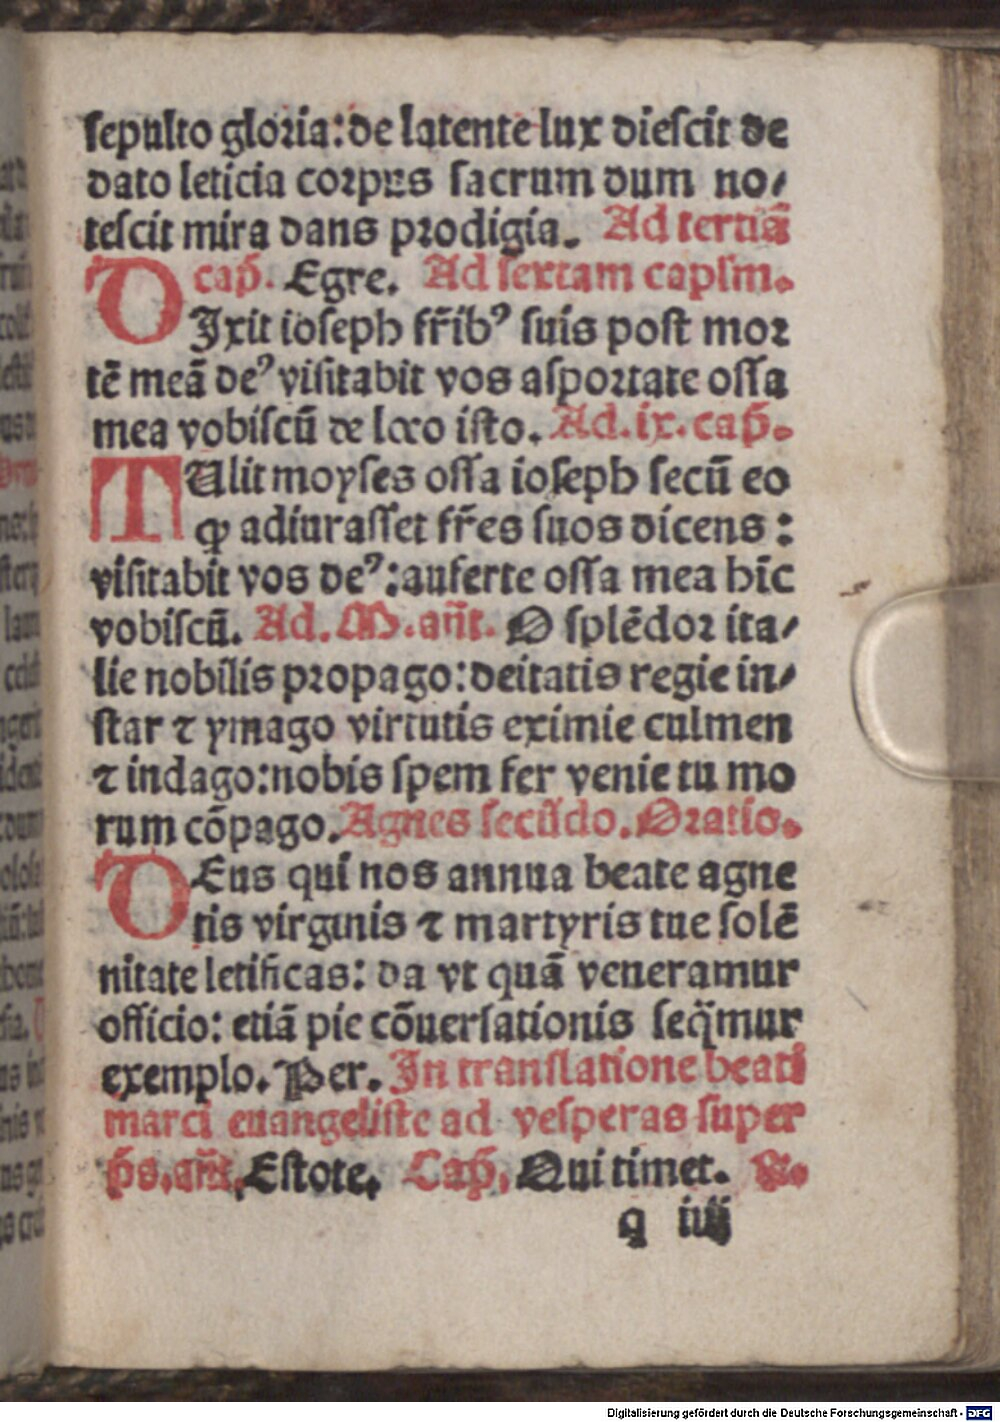 sepulto gloria: de latente lux diescit de
dato leticia corpus sacrum dum no⸗
tescit mira dans prodigia. Ad tertiā
cap̄. Egre. Ad sextam capl̄m.
DIxit ioseph fr̄ib⁹ suis post mor
tē meā de⁹ visitabit vos asportate ossa
mea vobiscū de loco isto. Ad .ix. cap̄.
TUlit moyses ossa ioseph secū eo
ꝙ adiurasset fr̄es suos dicens:
visitabit vos de⁹: auferte ossa mea hīc
vobiscū. Ad. M. an̄t. O splēdor ita⸗
lie nobilis propago: deitatis regie in⸗
star ⁊ ymago virtutis eximie culmen
⁊ indago: nobis spem fer venie tu mo
rum cōpago. Agnes secūdo. Oratio.
DEus qui nos annua beate agne
tis virginis ⁊ martyris tue solē
nitate letificas: da vt quā veneramur
officio: etiā pie cōuersationis seq̄mur
exemplo. Per. In translatione beati
marci euangeliste ad vesperas super
p̄s. an̄t. Estote. Cap̄. Qui timet. ℟.
q iiij
Digitalisierung gefördert durch die Deutsche Forschungsgemeinschaft - DFG